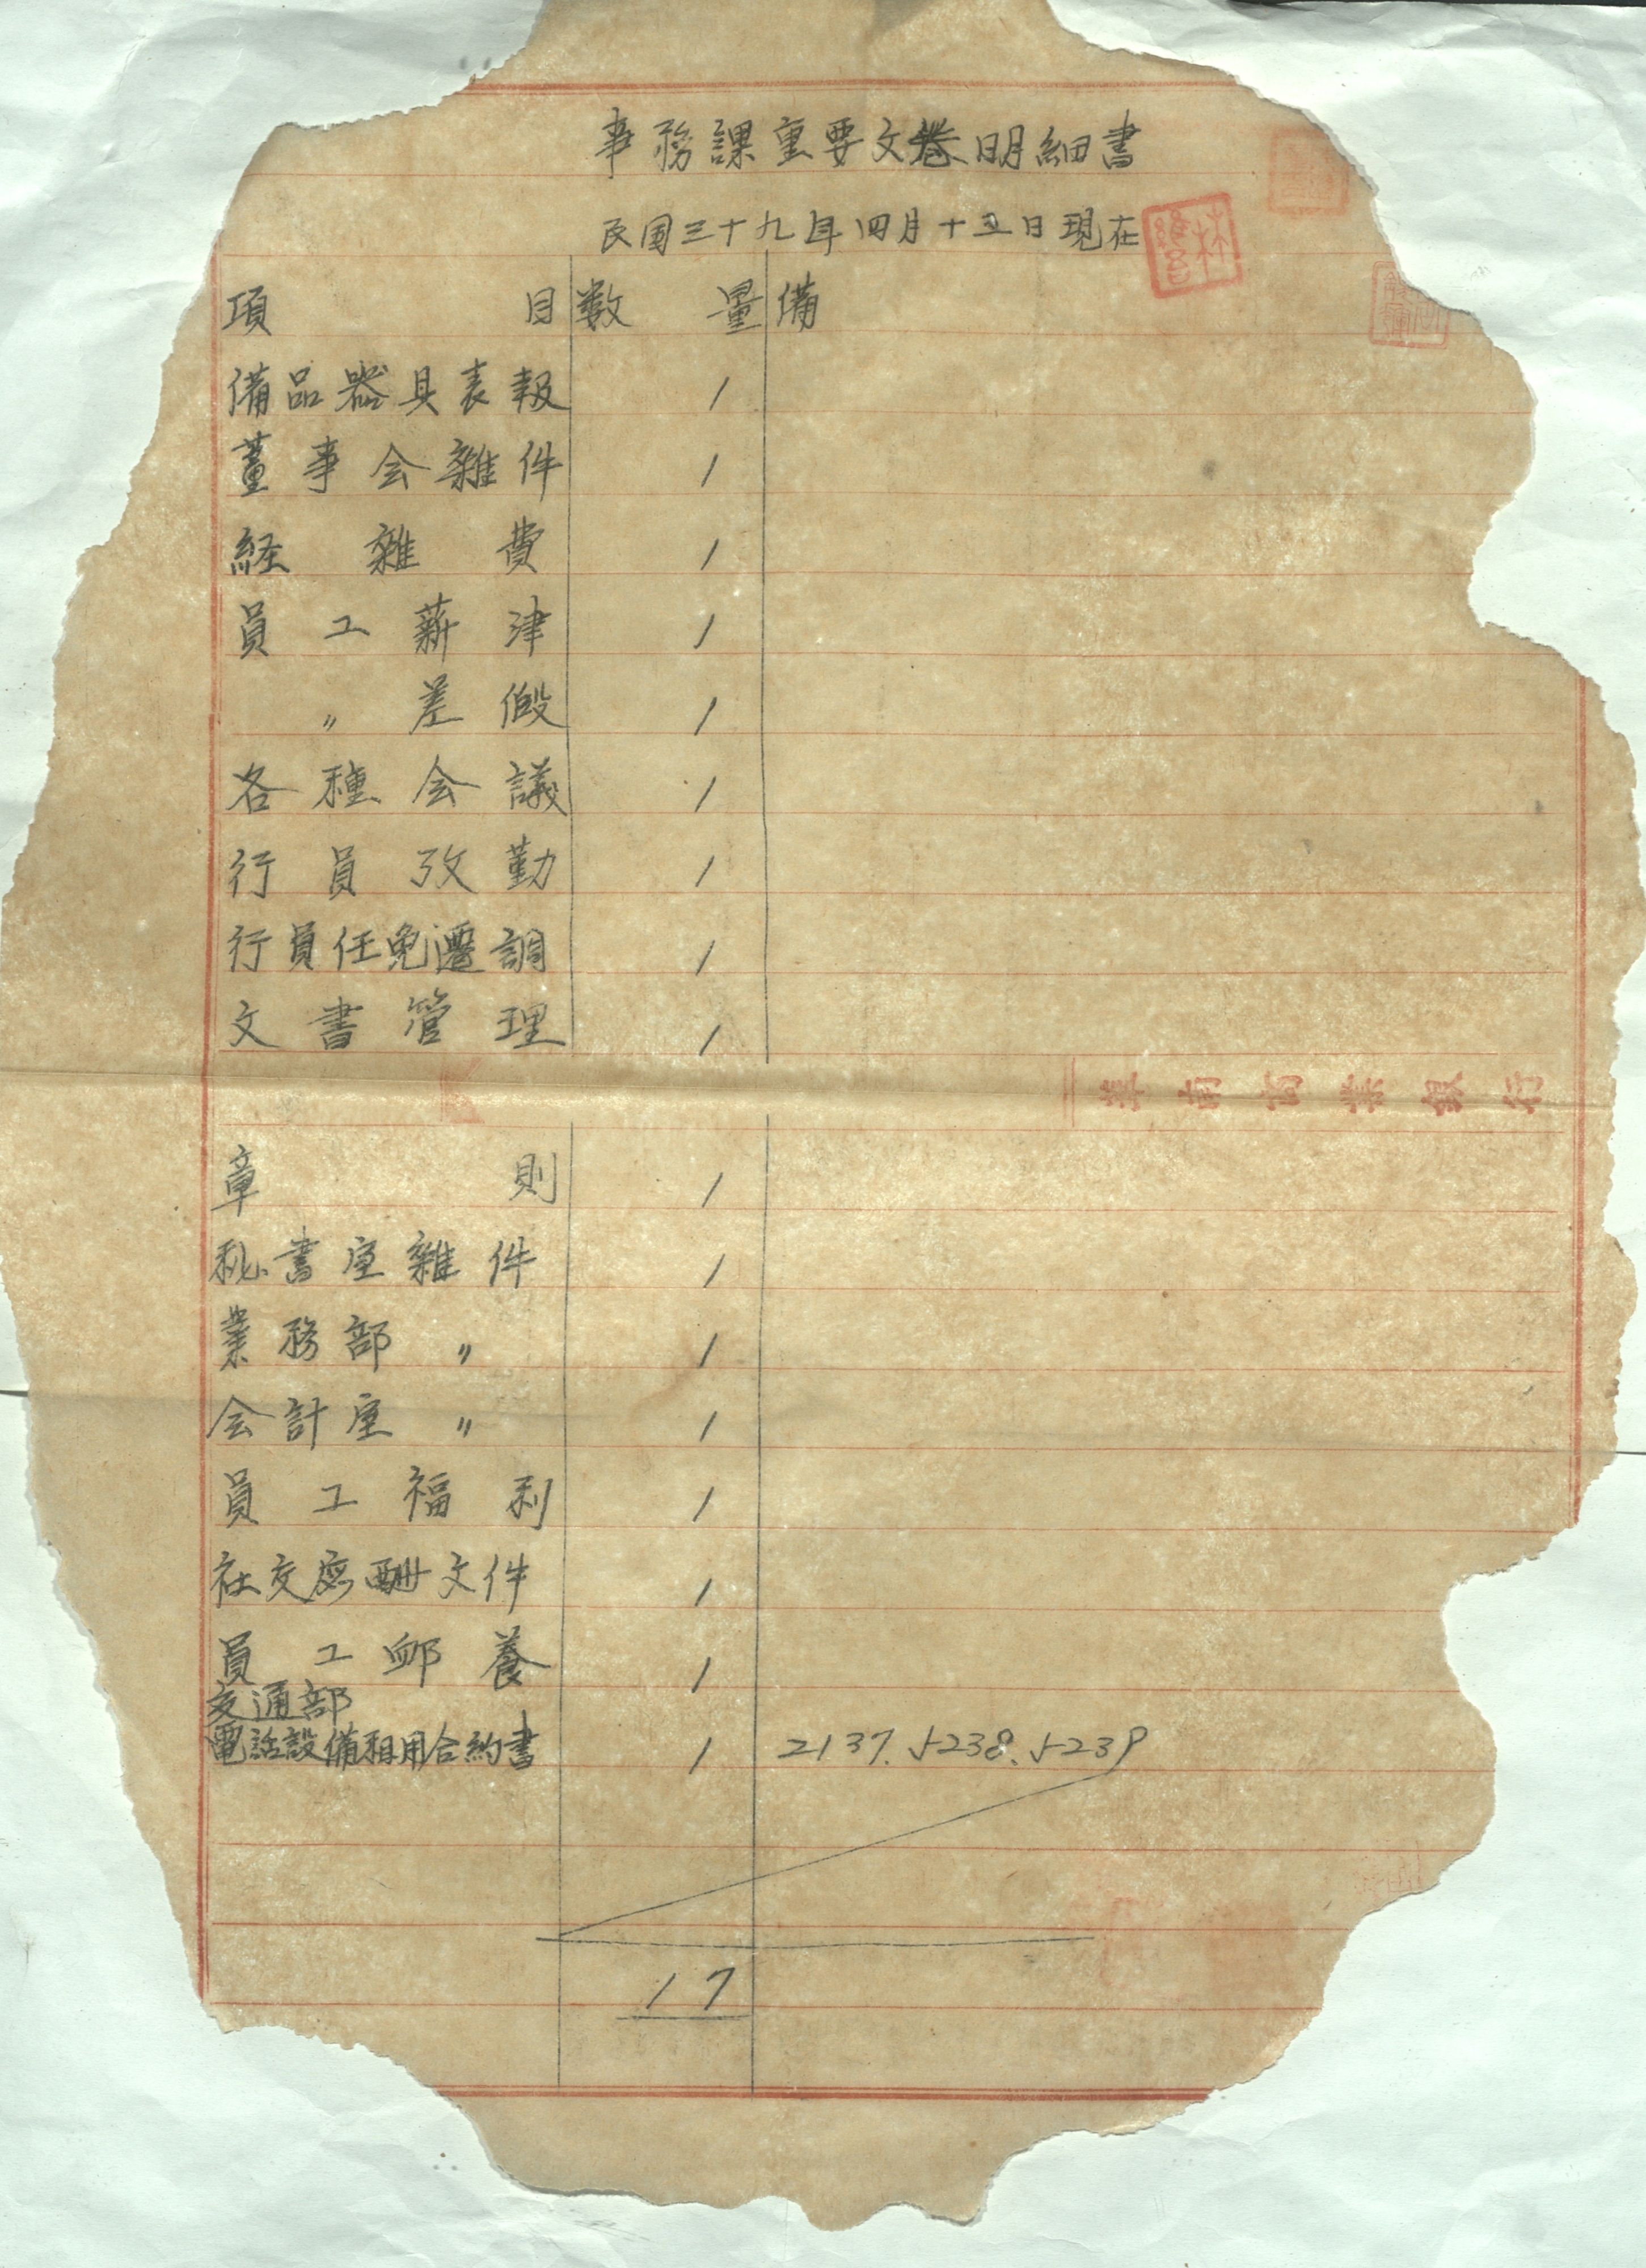 事務課重要文卷明細書
民国三十九年四月十五日現在
項目 数量 備
備品器具表報 1
董事会雜件 1
経雜費 1
員工薪津 1
〃差假 1
各種会議 1
行員攷勤 1
行員任免遷調 1
文書管理 1
華南商業銀行
章則 1
秘書室雜件 1
業務部〃 1
会計室〃 1
員工福利 1
社交應酬文件 1
員工卹養 1
交通部
電話設備租用合約書 1 2137、5238、5239
17